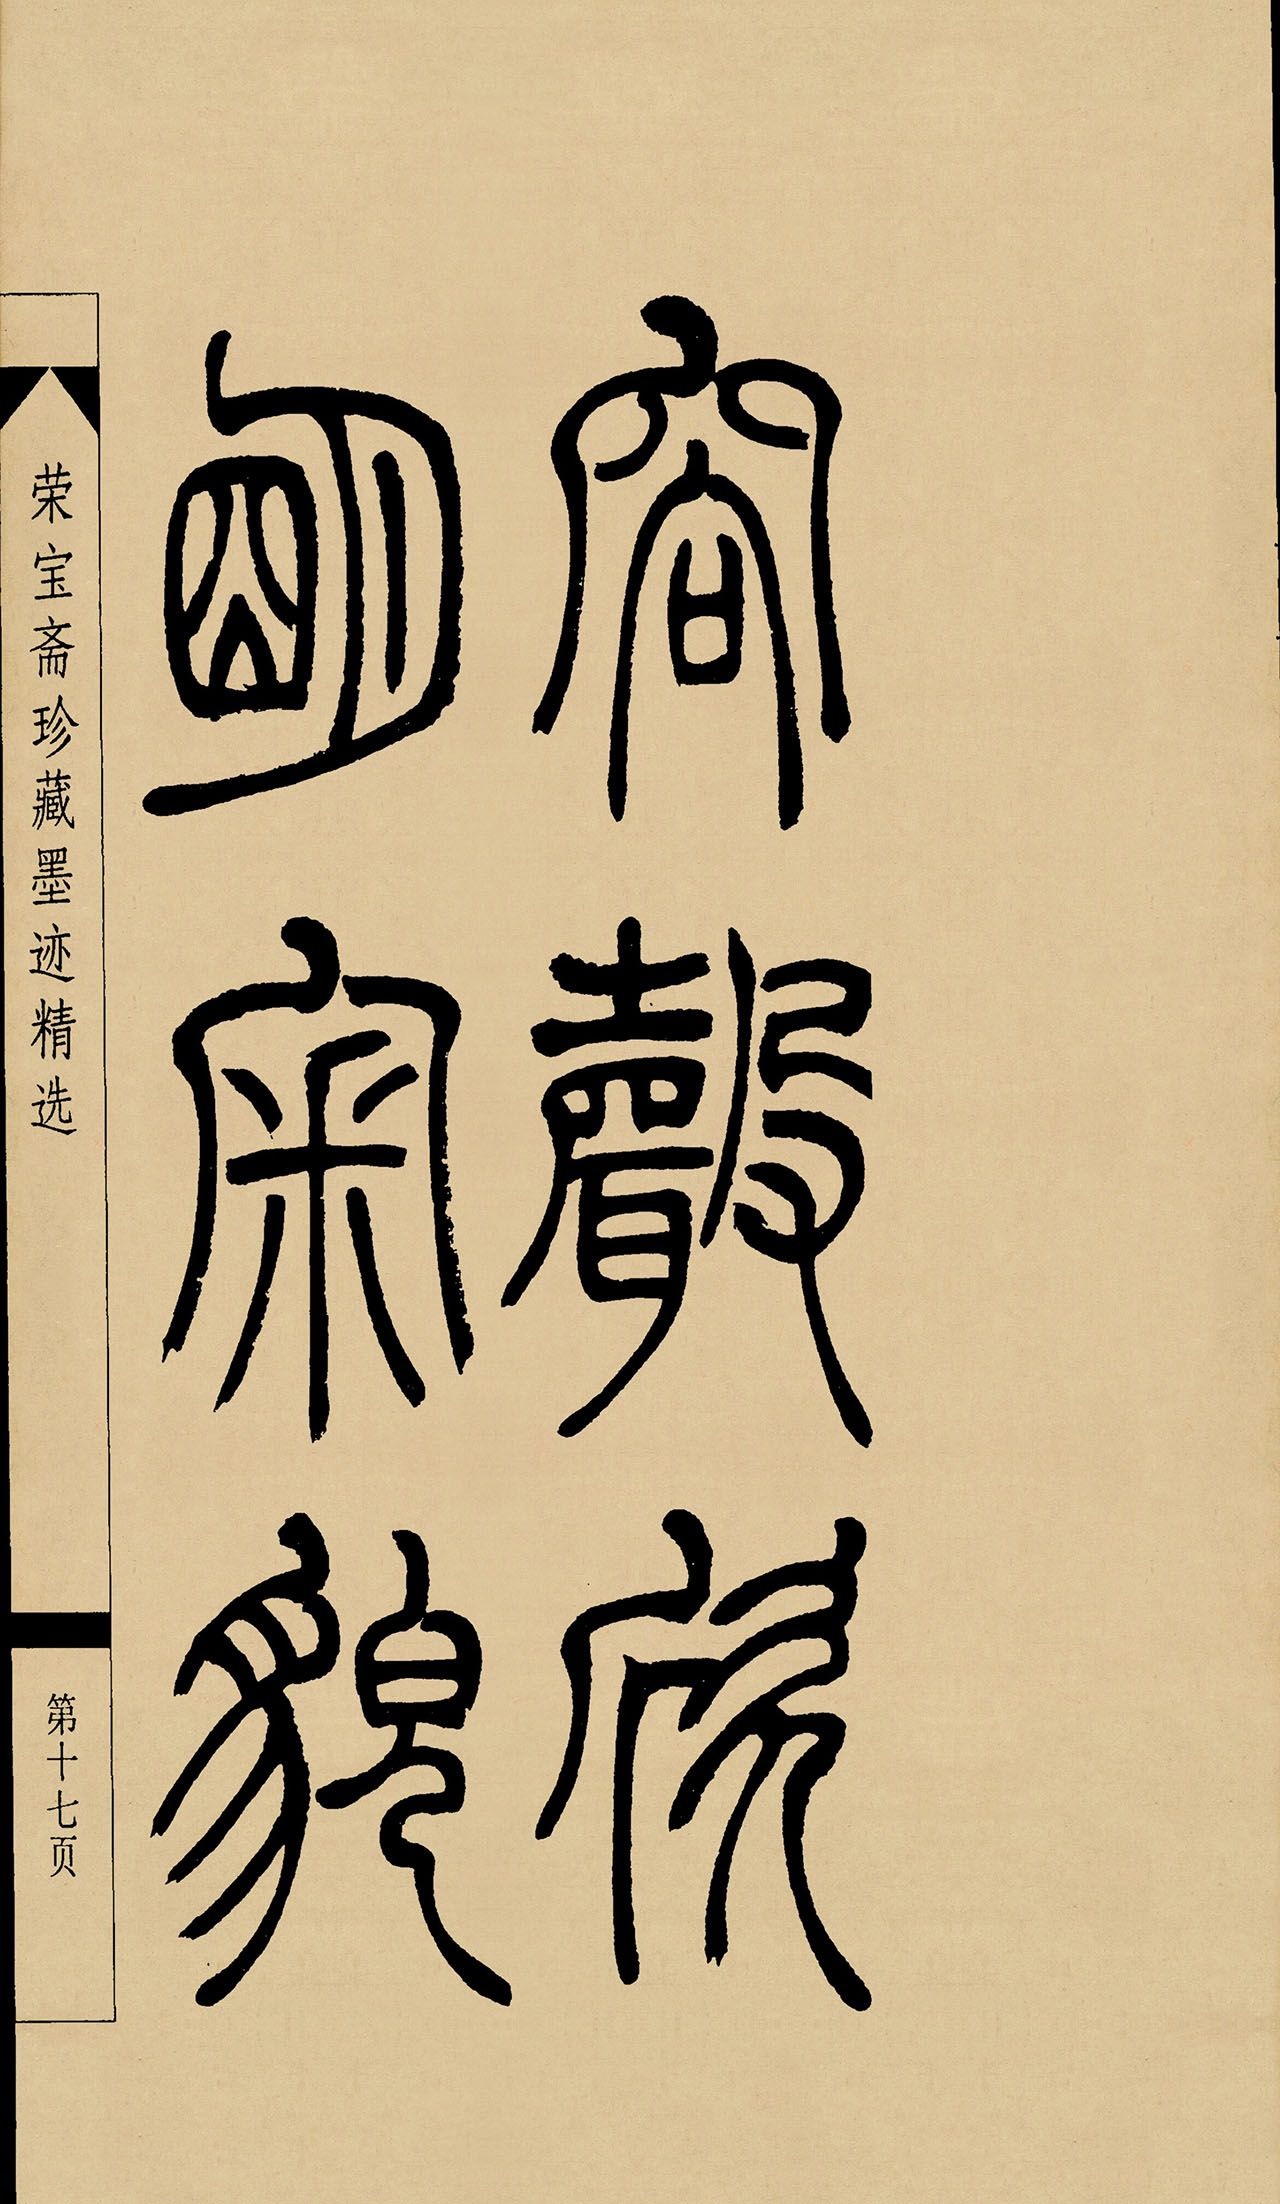 容聲欣
朙宷貌
荣宝斋珍藏墨迹精选
第十七页